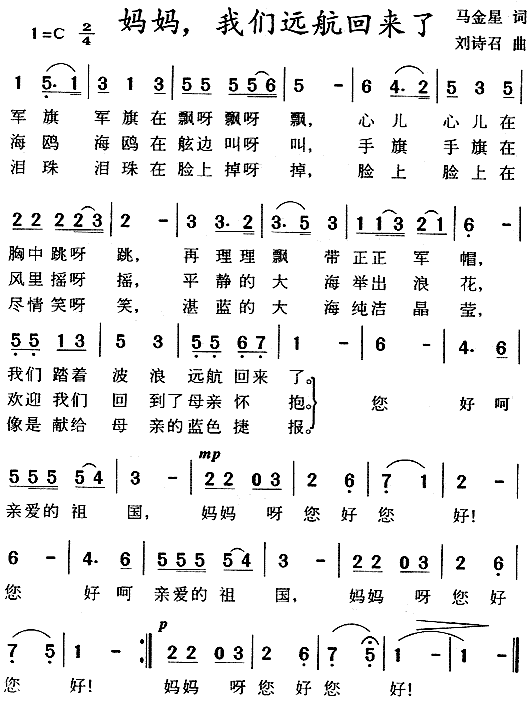 妈妈，我们远航回来了
马金星 词
刘诗召 曲
1=C 2/4
1 5· 1 | 3 1 3 | 5 5 5 5 6 | 5 - | 6 4· 2 | 5 3 5 |
军旗 军旗在飘呀飘呀 飘， 心儿 心儿在
海鸥 海鸥在舷边叫呀 叫， 手旗 手旗在
泪珠 泪珠在脸上掉呀 掉， 脸上 脸上在
2 2 2 2 3 | 2 - | 3 3· 2 | 3· 5 3 | 1 1 3 2 1 | 6 - |
胸中跳呀 跳， 再理理飘 带正正 军 帽，
风里摇呀 摇， 平静的大 海举出 浪 花，
尽情笑呀 笑， 湛蓝的大 海纯洁 晶 莹，
5 5 1 3 | 5 3 | 5 5 6 7 | 1 - | 6 - | 4· 6 |
我们踏着 波浪 远航回来 了。
欢迎我们 回到了母亲怀 抱。 您 好呵
像是献给 母亲的蓝色捷 报。
mp
5 5 5 5 4 | 3 - | 2 2 0 3 | 2 6 | 7 1 | 2 - |
亲爱的祖 国， 妈妈 呀您好您 好！
6 - | 4· 6 | 5 5 5 5 4 | 3 - | 2 2 0 3 | 2 6 |
您 好呵 亲爱的祖 国， 妈妈 呀您好
p
7 5 | 1 - :‖ 2 2 0 3 | 2 6 | 7 5 | 1 - | 1 - ‖
您 好！ 妈妈 呀您好您 好！